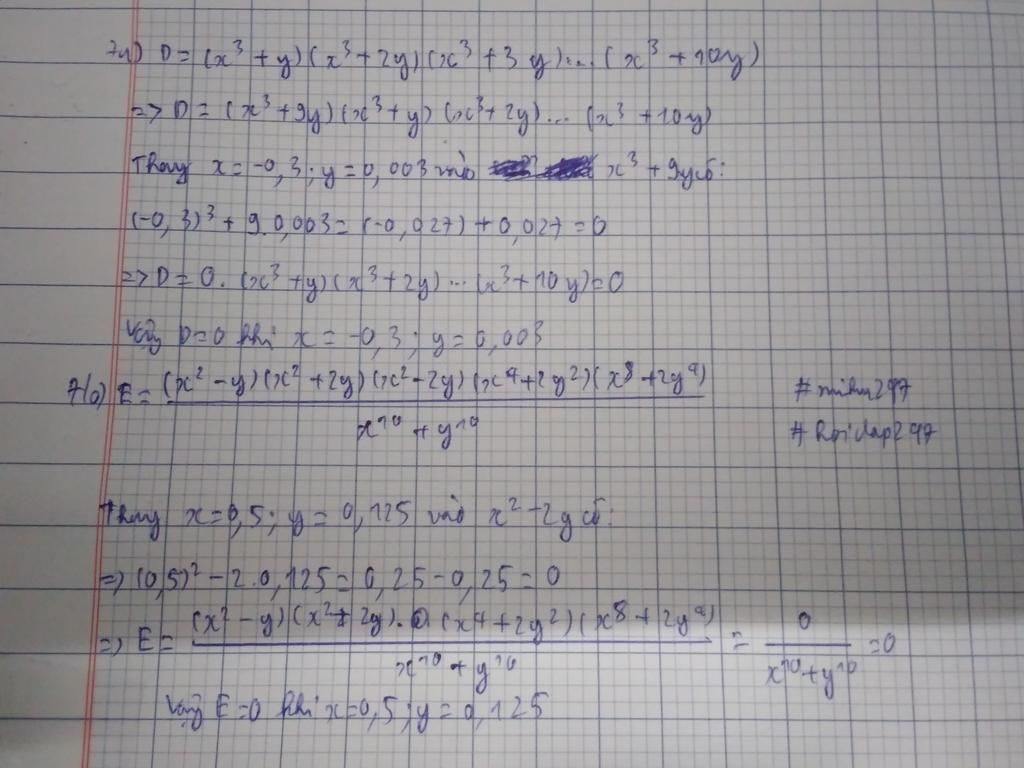 7a) D = (x³ + y)(x³ + 2y)(x³ + 3y)...(x³ + 10y)
=> D = (x³ + 9y)(x³ + y)(x³ + 2y)...(x³ + 10y)
Thay x = -0,3; y = 0,003 vào x³ + 9y có:
(-0,3)³ + 9.0,003 = (-0,027) + 0,027 = 0
=> D = 0.(x³ + y)(x³ + 2y)...(x³ + 10y) = 0
Vậy D = 0 khi x = -0,3; y = 0,003
7b) E = (x² - y)(x² + 2y)(x² - 2y)(x⁴ + 2y²)(x⁸ + 2y⁴)
#minhu297
x¹⁰ + y¹⁰
#hoidap297
Thay x = 0,5; y = 0,125 vào x² - 2y có:
=> (0,5)² - 2.0,125 = 0,25 - 0,25 = 0
=> E = (x² - y)(x² + 2y).0(x⁴ + 2y²)(x⁸ + 2y⁴) = 0 = 0
x¹⁰ + y¹⁰ x¹⁰ + y¹⁰
Vậy E = 0 khi x = 0,5; y = 0,125